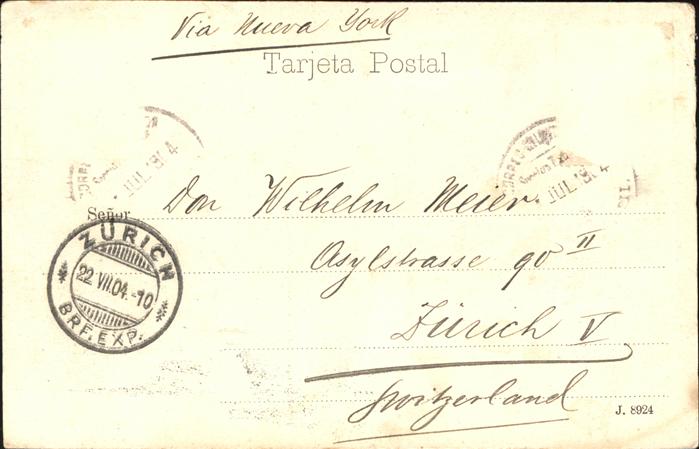 Via Nueva York
Tarjeta Postal
JUL
JUL
Señor Don Wilhelm Meier.
Asylstrasse 90 II
Zürich V
Switzerland
ZÜRICH
22.VII.04.-10
BRF.EXP.
J. 8924